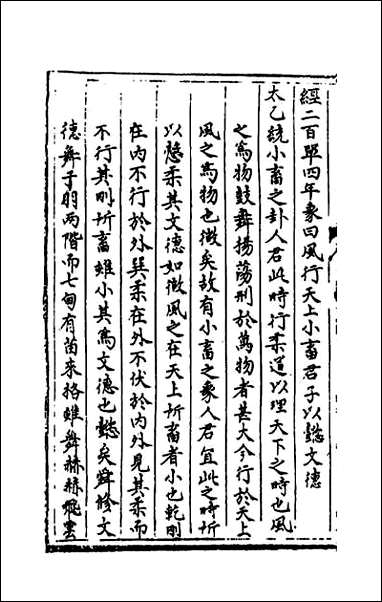 經二百單四年象曰風行天上小畜君子以懿文德
太乙統小畜之卦人君此時行柔道以理天下之時也風
之爲物鼓舞揚蕩刑於萬物者甚大今行於天上
風之爲物也微矣故有小畜之象人君宜此之時所
以懿柔其文德如微風之在天上所畜者小也乾剛
在內不行於外巽柔在外不伏於內外見其柔而
不行其剛所畜雖小其爲文德也懿矣舜修文
德舞于羽兩階而七旬有苗來格雖舞赫赫